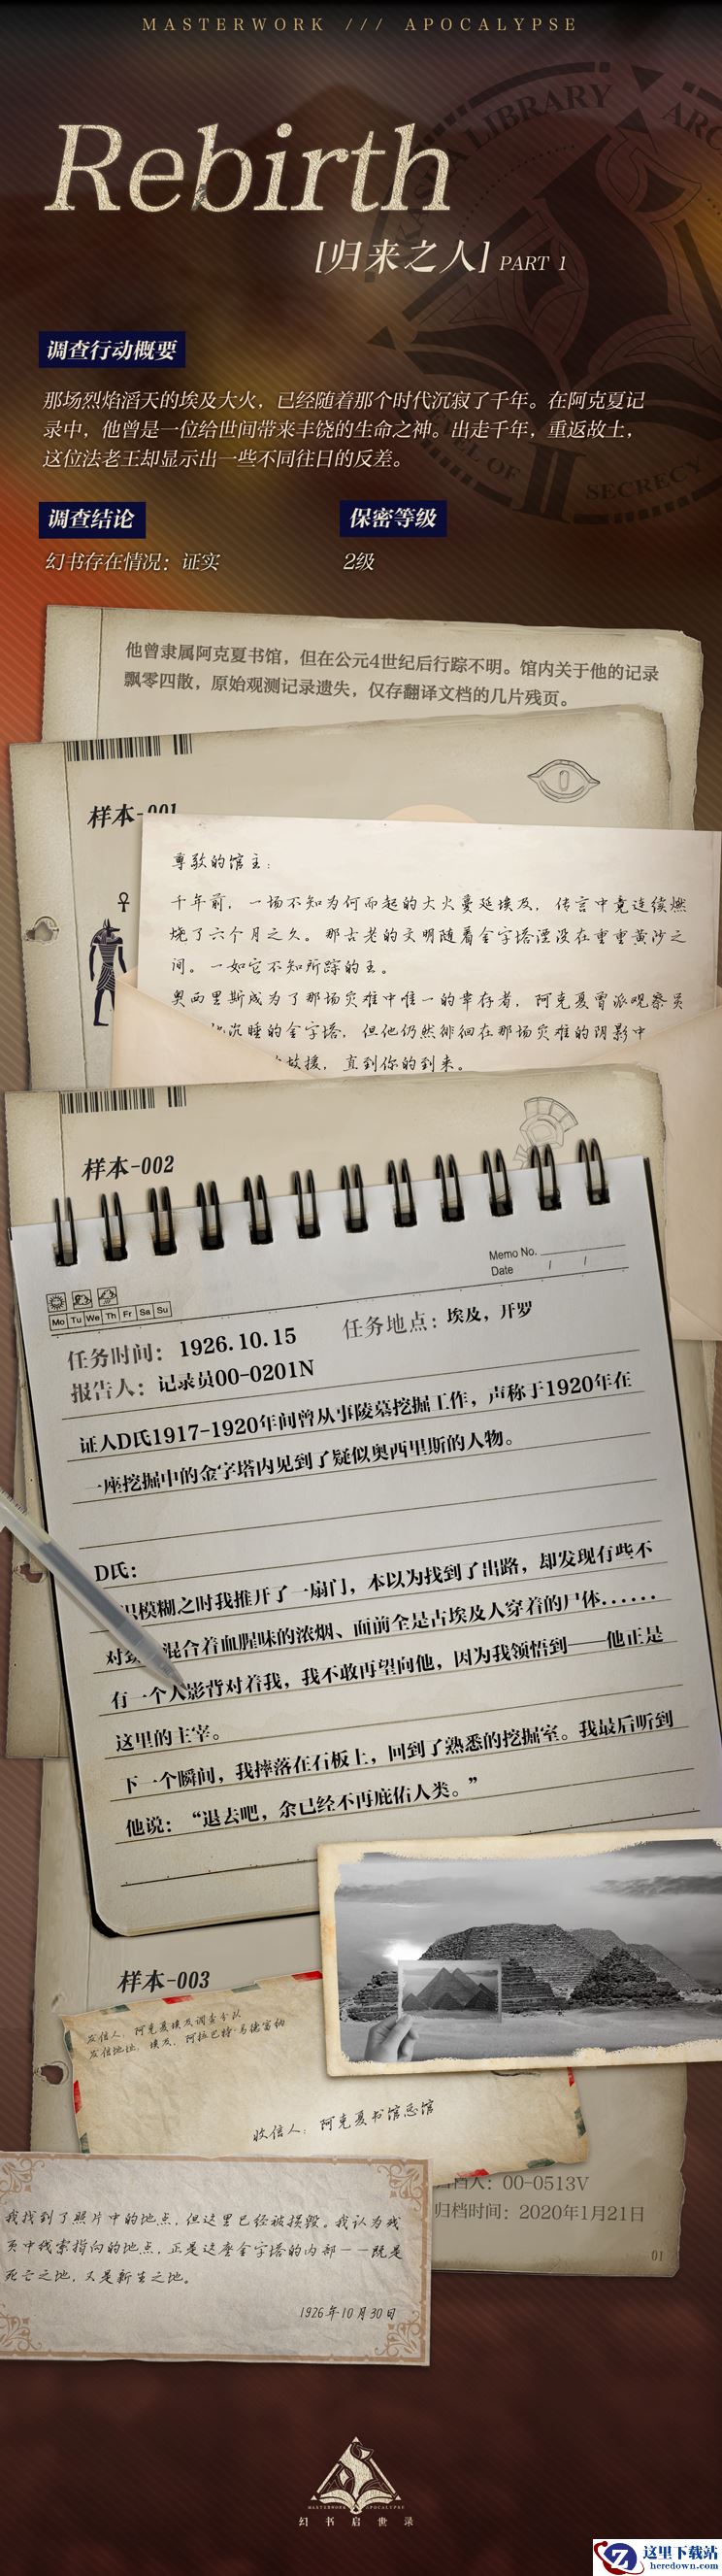 MASTERWORK /// APOCALYPSE
LIBRARY
Rebirth
[归来之人] PART 1
调查行动概要
那场烈焰滔天的埃及大火，已经随着那个时代沉寂了千年。在阿克夏记
录中，他曾是一位给世间带来丰饶的生命之神。出走千年，重返故土，
这位法老王却显示出一些不同往日的反差。
OF II SECRECY
调查结论
保密等级
幻书存在情况：证实
2级
他曾隶属阿克夏书馆，但在公元4世纪后行踪不明。馆内关于他的记录
飘零四散，原始观测记录遗失，仅存翻译文档的几片残页。
样本-001
尊敬的馆主：
千年前，一场不知为何而起的大火蔓延埃及，传言中竟连续燃
烧了六个月之久。那古老的文明随着金字塔湮没在重重黄沙之
间。一如它不知所踪的王。
奥西里斯成为了那场灾难中唯一的幸存者，阿克夏曾派观察员
沉睡的金字塔，但他仍然徘徊在那场灾难的阴影中
救援，直到你的到来。
样本-002
Memo No.
Date / /
Mo Tu We Th Fr Sa Su
任务时间：1926.10.15 任务地点：埃及，开罗
报告人：记录员00-0201N
证人D氏1917-1920年间曾从事陵墓挖掘工作，声称于1920年在
一座挖掘中的金字塔内见到了疑似奥西里斯的人物。
D氏：
识模糊之时我推开了一扇门，本以为找到了出路，却发现有些不
对 混合着血腥味的浓烟、面前全是古埃及人穿着的尸体……
有一个人影背对着我，我不敢再望向他，因为我领悟到——他正是
这里的主宰。
下一个瞬间，我摔落在石板上，回到了熟悉的挖掘室。我最后听到
他说：“退去吧，余已经不再庇佑人类。”
样本-003
发信人：阿克夏埃及调查分队
发信地址：埃及，阿拉巴特·马德富纳
收信人：阿克夏书馆总馆
归档人：00-0513V
归档时间：2020年1月21日
01
我找到了照片中的地点，但这里已经被损毁。我认为残
页中线索指向的地点，正是这座金字塔的内部——既是
死亡之地，又是新生之地。
1926年10月30日
MASTERWORK APOCALYPSE
幻书启世录
这里下载站
heredown.com